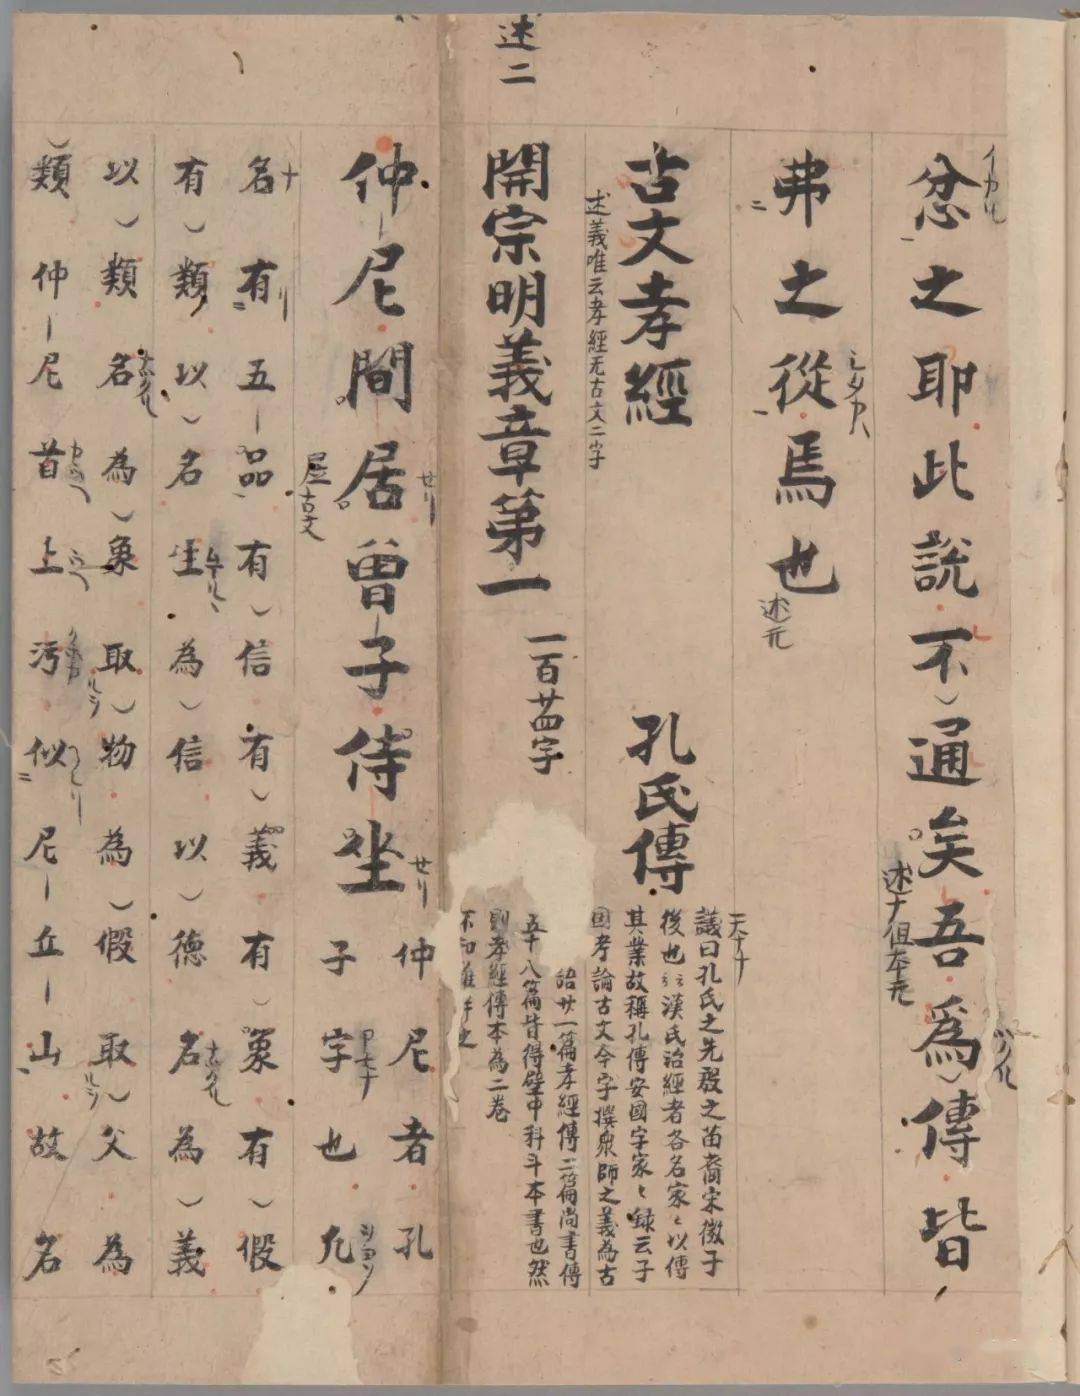 忿之耶此説不通矣吾為傳皆
述ナ但本无
弗之從焉也
述无
古文孝經 孔氏傳
述義唯云孝經无古文二字
議曰孔氏之先殷之苗裔宋微子
後也漢氏治經者各名家〻以傳
其業故稱孔傳安國字家〻録云子
国孝論古文今字撰衆師之義為古
廿一篇孝經傳二篇尚書傳
五十八篇皆得壁中科斗本書也然
則孝經傳本為二卷
不知
述二
開宗明義章第一 一百廿四字
仲尼間居曽子侍坐
居古文
仲尼者孔
子字也凢
名有五品有信有義有象有假
有類以名生為信以德名為義
以類名為象取物為假取父為
類仲尼首上汚似尼丘山故名